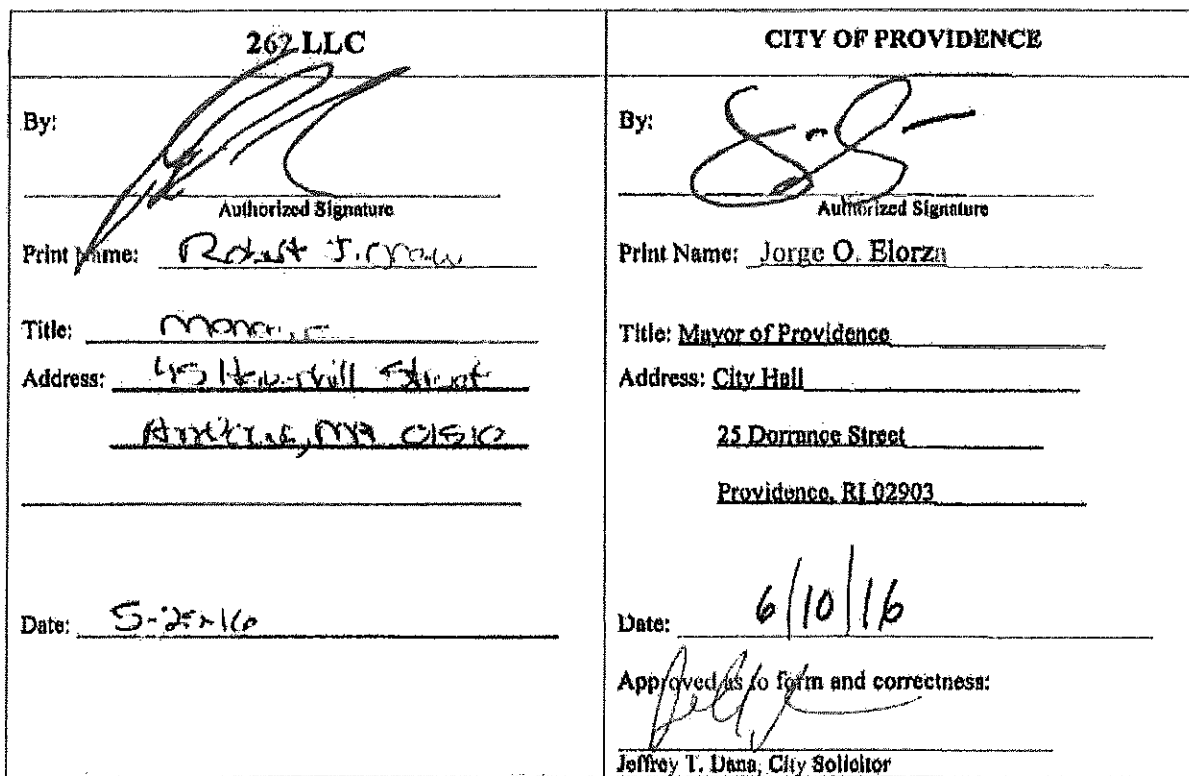 262 LLC
By:
Authorized Signature
Print Name: Robert J.
Title:
Address: 45 Haverhill Street
MA 01810
Date: 5-25-16
CITY OF PROVIDENCE
By:
Authorized Signature
Print Name: Jorge O. Elorza
Title: Mayor of Providence
Address: City Hall
25 Dorrance Street
Providence, RI 02903
Date: 6/10/16
Approved as to form and correctness:
Jeffrey T. Dana, City Solicitor